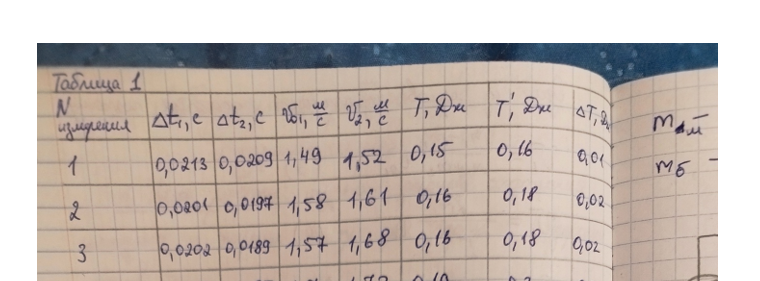 Таблица 1
N измерения Δt₁, с Δt₂, с V₀₁, м/с V₂, м/с T, Дж T', Дж ΔT, Дж
1 0,0213 0,0209 1,49 1,52 0,15 0,16 0,01
2 0,0201 0,0197 1,58 1,61 0,16 0,18 0,02
3 0,0202 0,0189 1,57 1,68 0,16 0,18 0,02
mб